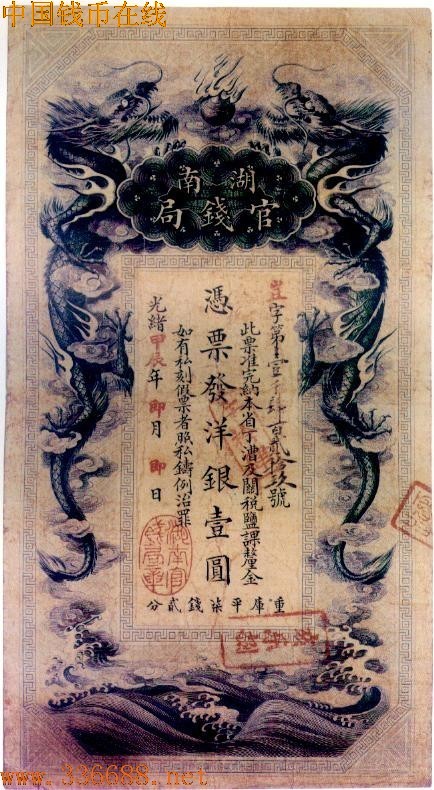 中国钱币在线
湖南
官錢局
字第壹千肆百貳拾玖號
此票准完納本省丁漕及關稅鹽課釐金
憑票發洋銀壹圓
如有私刻假票者照私鑄例治罪
光緒甲辰年即月即日
重庫平柒錢貳分
www.336688.net